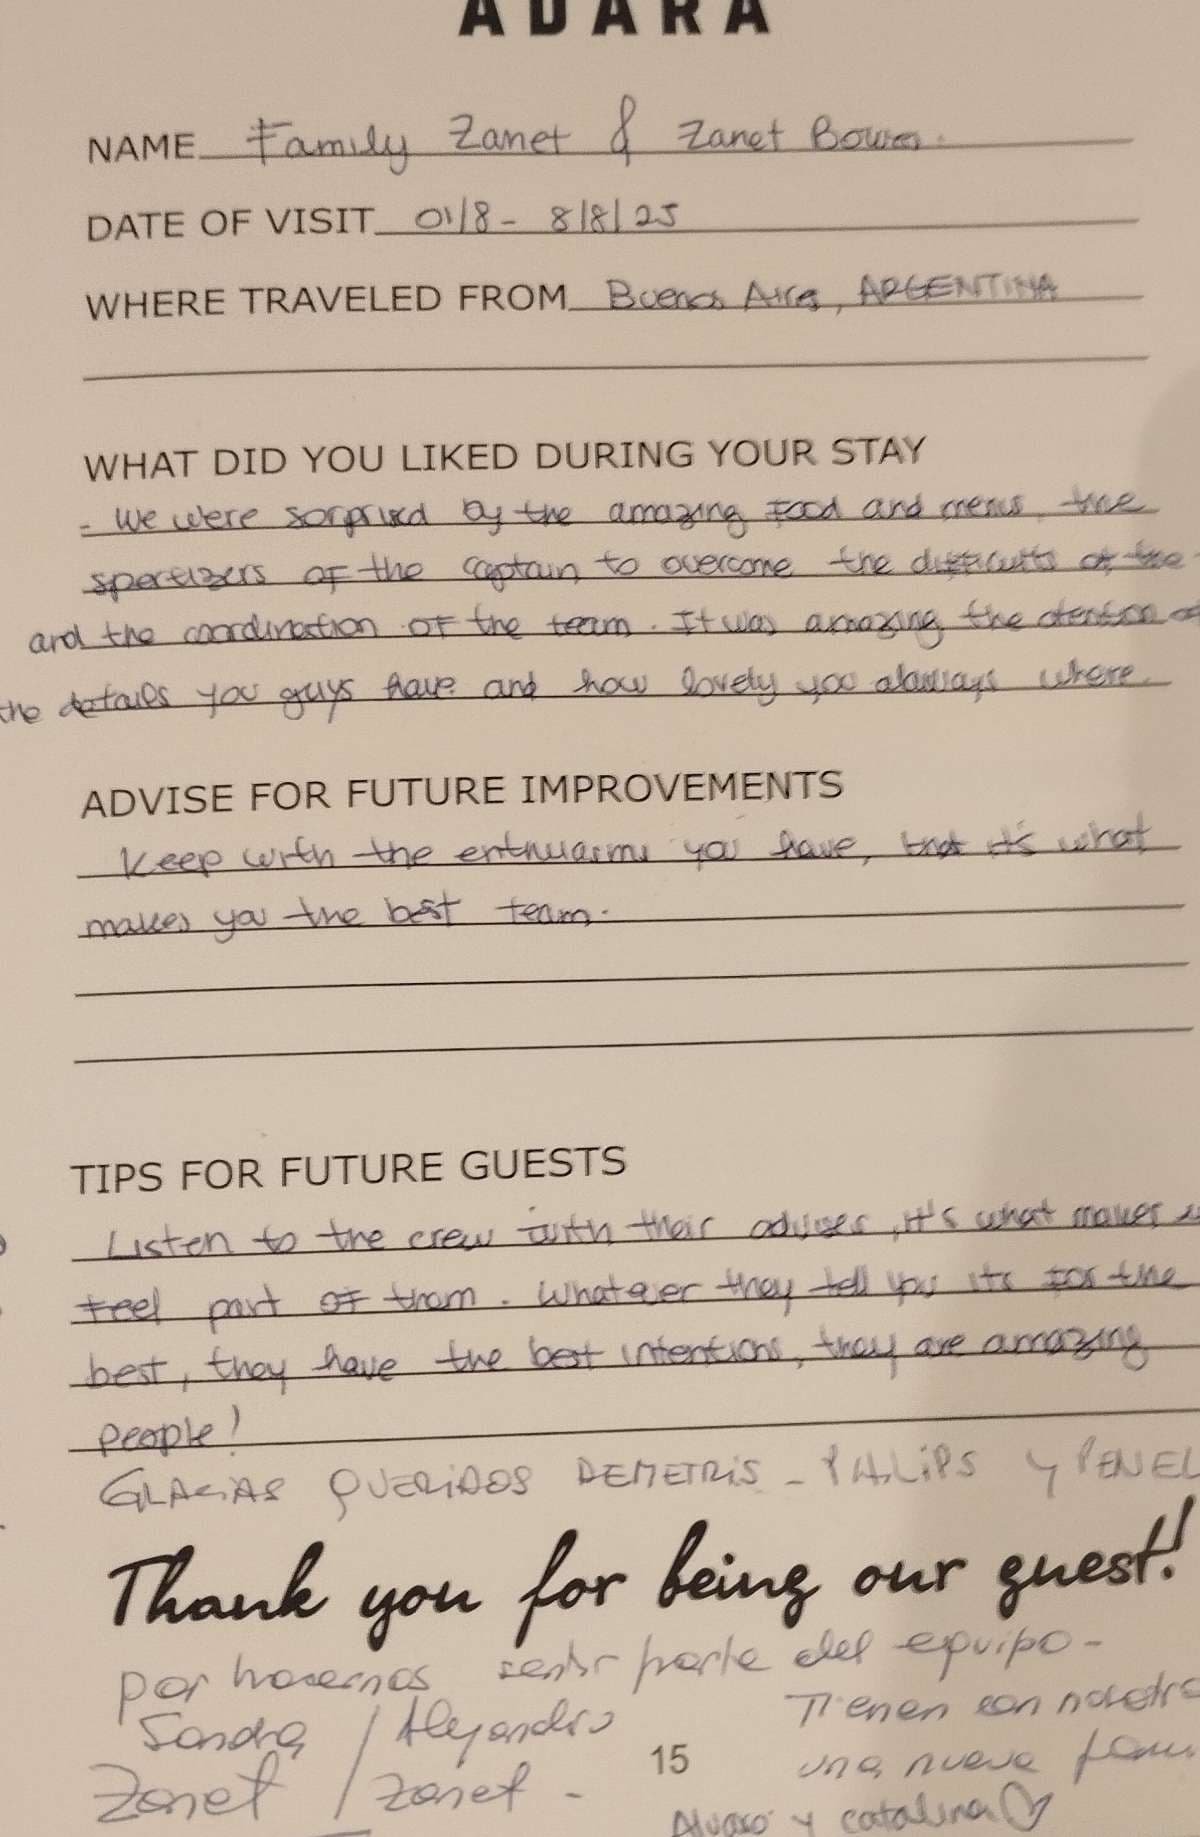 ADARA
NAME Family Zanet & Zanet Bower.
DATE OF VISIT 01/8 - 8/8/25
WHERE TRAVELED FROM Buenos Aires, ARGENTINA
WHAT DID YOU LIKED DURING YOUR STAY
- We were sorprised by the amazing food and menus, the
spertizers of the captain to overcome the difficults of the
and the coordination of the team. It was amazing the atention of
the details you guys have and how lovely you always where.
ADVISE FOR FUTURE IMPROVEMENTS
Keep with the enthuiasms you have, that it's what
makes you the best team.
TIPS FOR FUTURE GUESTS
Listen to the crew with their advises, it's what makes us
feel part of them. Whatever they tell you its for the
best, they have the best intentions, they are amazing
people!
GRACIAS QUERIDOS DEMETRIS - PHILIPS y PENEL
Thank you for being our guest!
por hacernos sentir parte del equipo -
Sandra / Alejandro Tienen con nosotro
Zanet / Zanet - 15 una nueva fam
Alvaro y catalina ♡